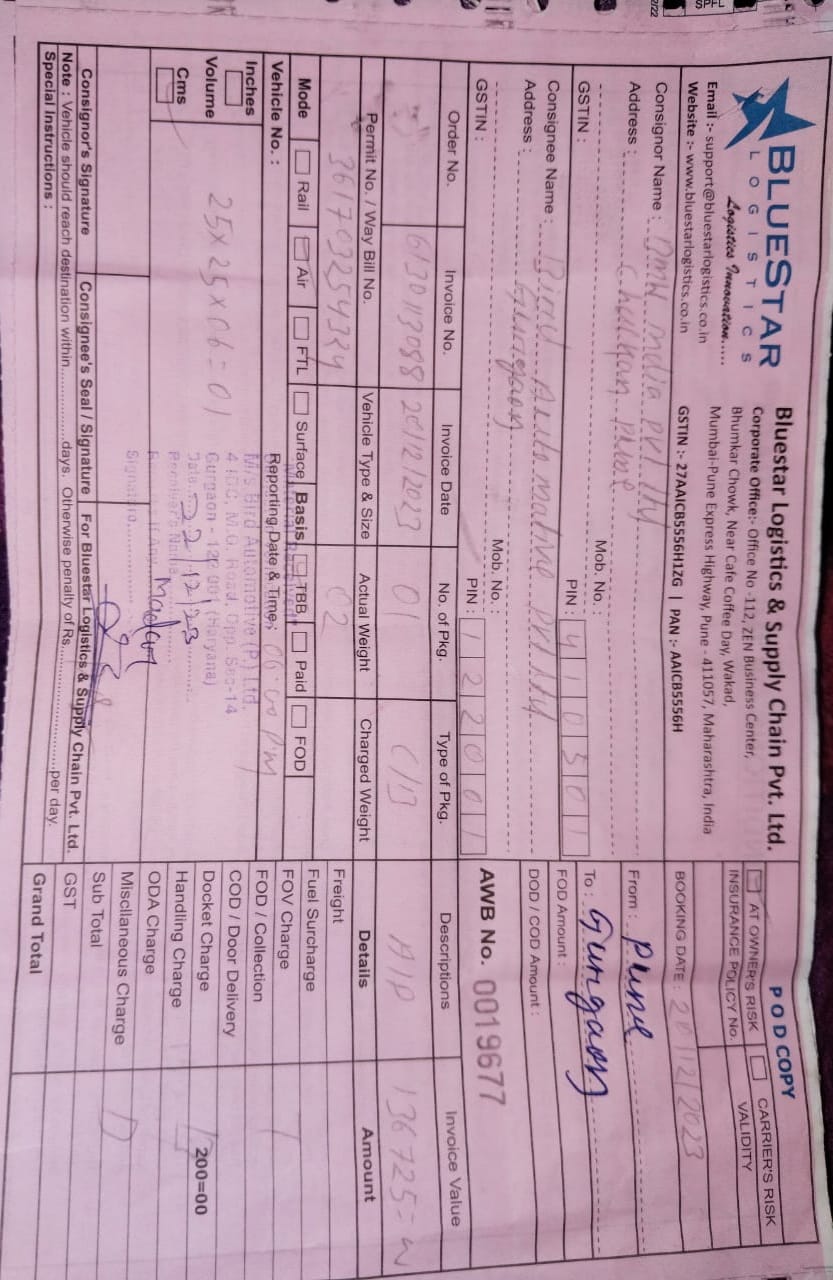 BLUESTAR
LOGISTICS
Logistics Innovation.....
Email :- support@bluestarlogistics.co.in
Website :- www.bluestarlogistics.co.in
Bluestar Logistics & Supply Chain Pvt. Ltd.
Corporate Office:- Office No -112, ZEN Business Center,
Bhumkar Chowk, Near Cafe Coffee Day, Wakad,
Mumbai-Pune Express Highway, Pune - 411057, Maharashtra, India
GSTIN :- 27AAICB5556H1ZG | PAN :- AAICB5556H
POD COPY
AT OWNER'S RISK CARRIER'S RISK
INSURANCE POLICY No. VALIDITY
BOOKING DATE : 20/12/2023
From : Pune
To : Gurgaon
FOD Amount :
DOD / COD Amount :
AWB No. 0019677
Consignor Name : BMW India Pvt lty
Address : Chalkan Pune
Mob. No. :
GSTIN : PIN : 410501
Consignee Name : Bird Automative Pvt lty
Address : Gurgaon
Mob. No. :
GSTIN : PIN : 122001
Order No. Invoice No. Invoice Date No. of Pkg. Type of Pkg. Descriptions Invoice Value
6130113088 20/12/2023 01 C/B A/P 136725=
Permit No. / Way Bill No. Vehicle Type & Size Actual Weight Charged Weight Details Amount
361703254324 02
Freight
Fuel Surcharge
FOV Charge T
FOD / Collection
COD / Door Delivery
Docket Charge B 200=00
Handling Charge
ODA Charge
Miscllaneous Charge D
Sub Total
GST
Grand Total
Mode Rail Air FTL Surface Basis TBB Paid FOD
Vehicle No. : Reporting Date & Time : 06:00 Pm
Inches
Volume
Cms
25x25x06=01
"Material Received"
M/s Bird Automotive (P.) Ltd.
4 IDC, M.G. Road, Opp. Sec-14
Gurgaon - 122 001 (Haryana)
Date 22/12/23
Receiver's Name
If Any Madan
Signature
Consignor's Signature Consignee's Seal / Signature For Bluestar Logistics & Supply Chain Pvt. Ltd.
Note : Vehicle should reach destination within.................days. Otherwise penalty of Rs.............................per day.
Special Instructions :